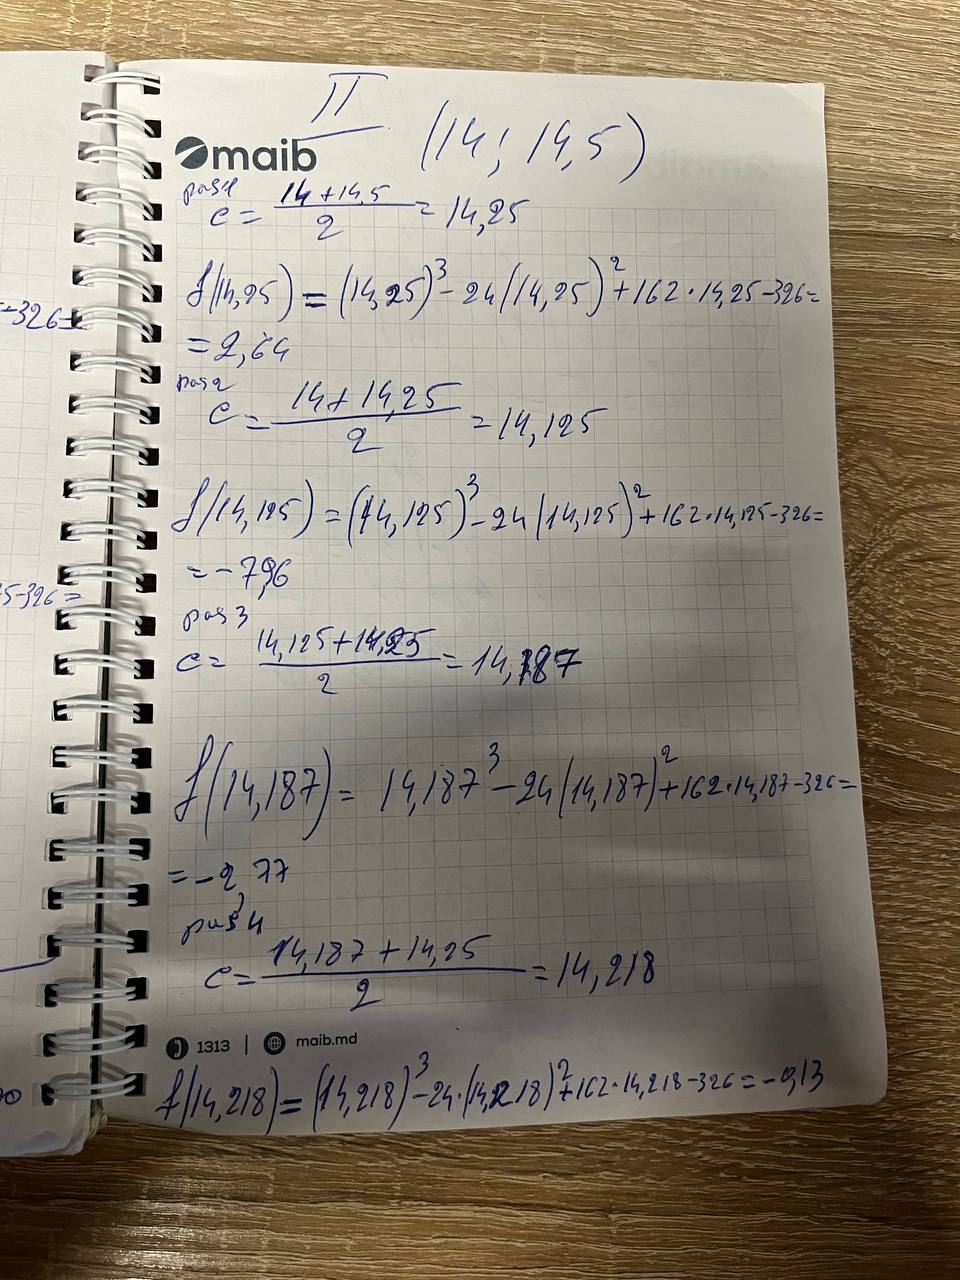 II
(14; 14,5)
maib
pas 1
c = 14 + 14,5 / 2 = 14,25
f(14,25) = (14,25)³ - 24(14,25)² + 162 · 14,25 - 326 =
= 2,64
pas 2
c = 14 + 14,25 / 2 = 14,125
f(14,125) = (14,125)³ - 24(14,125)² + 162 · 14,125 - 326 =
= -7,96
pas 3
c = 14,125 + 14,25 / 2 = 14,187
f(14,187) = 14,187³ - 24(14,187)² + 162 · 14,187 - 326 =
= -2,77
pas 4
c = 14,187 + 14,25 / 2 = 14,218
1313 | maib.md
f(14,218) = (14,218)³ - 24 · (14,218)² + 162 · 14,218 - 326 = -0,13
-326 =
5-326 =